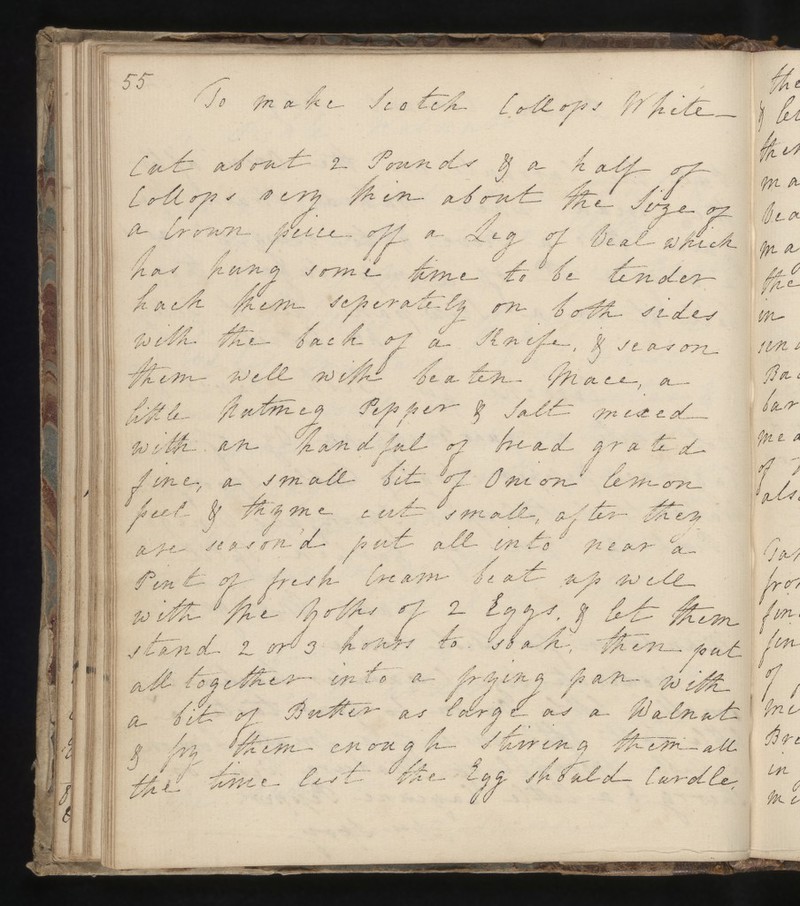 55
To make Scotch Collops White —
Cut about 2 Pounds & a half of
Collops very thin about the Size of
a Crown peice off a Leg of Veal which
has hung some time to be tender
hack them seperately on both sides
with the back of a Knife, & season
them well with beaten Mace, a
little Nutmeg Pepper & Salt mixed
with an handful of bread grated
fine, a small bit of Onion lemon
peel & thyme cut small, after they
are season'd put all into near a
Pint of fresh Cream beat up well
with the Yolks of 2 Eggs. & let them
stand 2 or 3 hours to soak, then put
all together into a frying pan with
a bit of Butter as large as a Walnut
& fry them enough Stiring them all
the time lest the Egg should Curdle.